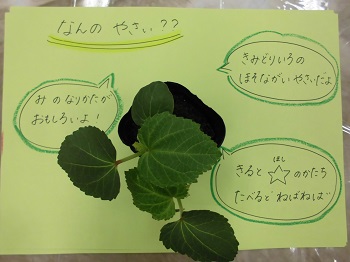 なんの やさい??
きみどりいろの
ほそながい やさいだよ
み のなりかたが
おもしろいよ!
ほし
きると ☆ のかたち
たべるとねばねば